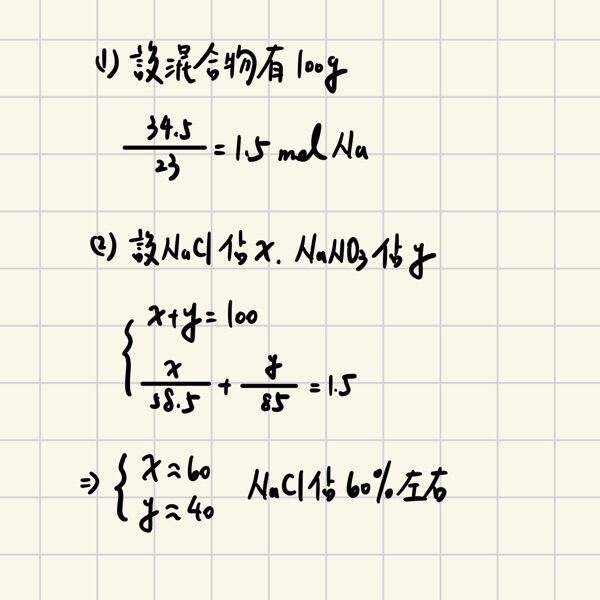 (1) 設混合物有100g
34.5/23 = 1.5 mol Na
(2) 設NaCl佔x. NaNO3佔y
x+y=100
x/58.5 + y/85 = 1.5
⇒ { x≈60
y≈40 NaCl佔60%左右